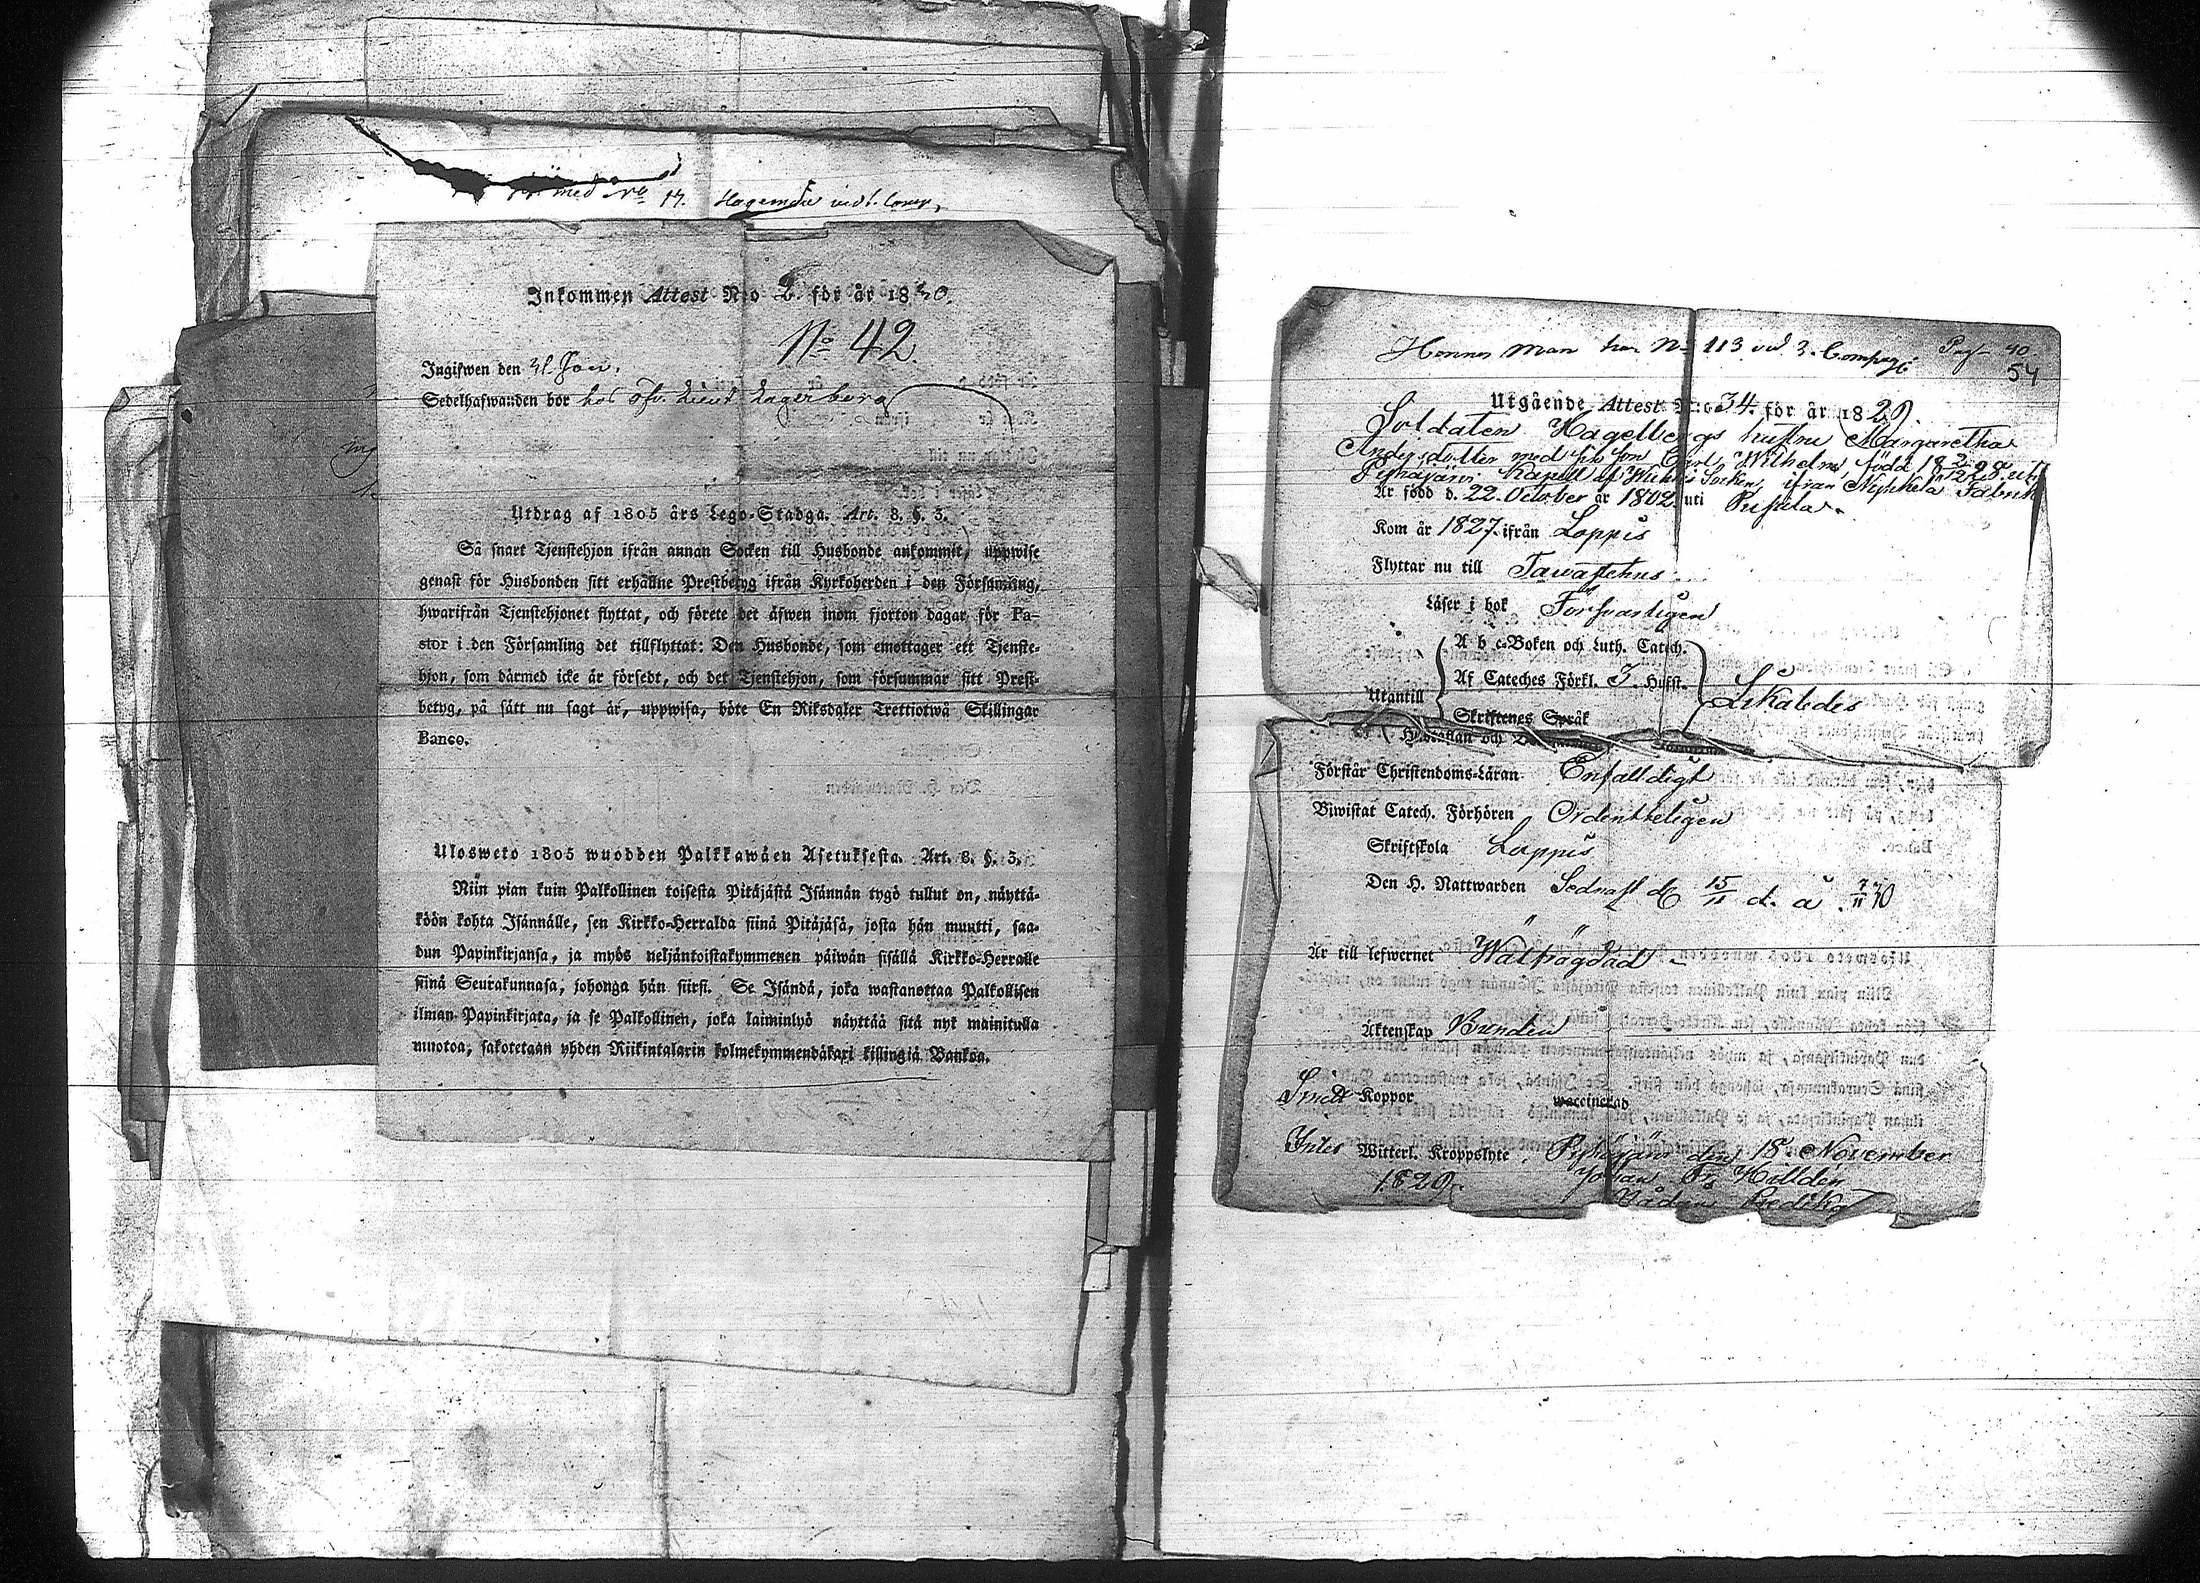 med No 17.
Inkommen Attest N:o 2. för år 1830.
No 42.
Ingifwen den 31 Jan.
Sedelhafwanden bor hos Öfv. Lieut Lagerborg
Utdrag af 1805 års Lego-Stadga. Art. 8. §. 3.
Så snart Tjenstehjon ifrån annan Socken till Husbonde ankommit, uppwise
genast för Husbonden sitt erhållne Prestbetyg ifrån Kyrkoherden i den Församling,
hwarifrån Tjenstehjonet flyttat, och förete det äfwen inom fjorton dagar för Pa-
stor i den Församling det tillflyttat: Den Husbonde, som emottager ett Tjenste-
hjon, som därmed icke är försedt, och det Tjenstehjon, som försummar sitt Prest-
betyg, på sätt nu sagt är, uppwisa, böte En Riksdaler Trettiotwå Skillingar
Banco.
Ulosweto 1805 wuodden Palkkawäen Asetuksesta. Art. 8. §. 3.
Niin pian kuin Palkollinen toisesta Pitäjästä Isännän tygö tullut on, näyttä-
köön kohta Isännälle, sen Kirkko-Herralda siinä Pitäjäsä, josta hän muutti, saa-
dun Papinkirjansa, ja myös neljäntoistakymmenen päiwän sisällä Kirkko-Herralle
siinä Seurakunnasa, johonga hän siirsi. Se Isändä, joka wastanottaa Palkollisen
ilman Papinkirjata, ja se Palkollinen, joka laiminlyö näyttää sitä nyt mainitulla
muotoa, sakotetaan yhden Riikintalarin kolmekymmendäkaxi killingiä Bankoa.
Hennes Man har No 113 vid 3. Compagn
Pag 40
54
Utgående Attest N:o 34. för år 1829.
Soldaten Hagelbergs hustru Margaretha
Andersdotter med sin son Carl Wilhelm född 18 1828 uti
Pyhäjärvi Kapell af Wichtis Socken, ifrån Nyhkelä Fabrik
Är född d. 22. October år 1802. uti Pusula.
Kom år 1827. ifrån Loppis
Flyttar nu till Tawastehus
Läser i bok Försvarligen
A b c-Boken och Luth. Catech.
Af Cateches Förkl. 3. Hufst.
Utantill
Likaledes
Skriftenes Språk
Hustaflan och
Förstår Christendoms-Läran Enfalldigt
Biwistat Catech. Förhören Ordentteligen
Skriftskola Loppis
Den H. Nattwarden Sednast d 15/11 d. å. 7/11 30
Är till lefwernet Wälfrägdad
Äktenskap Bunden
Smitt Koppor waccinerad
Intet Witterl. Kroppslyte. Pyhäjärvi den 18 November
1829. Johan Fr Hilldén
Predik